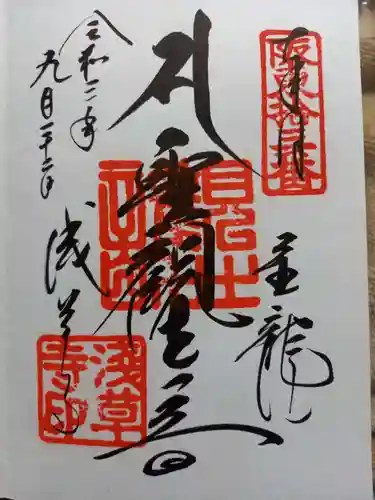 奉拝
坂東拾三番
金龍山
聖観世音
令和二年
九月二十二日
浅草寺
淺草寺印